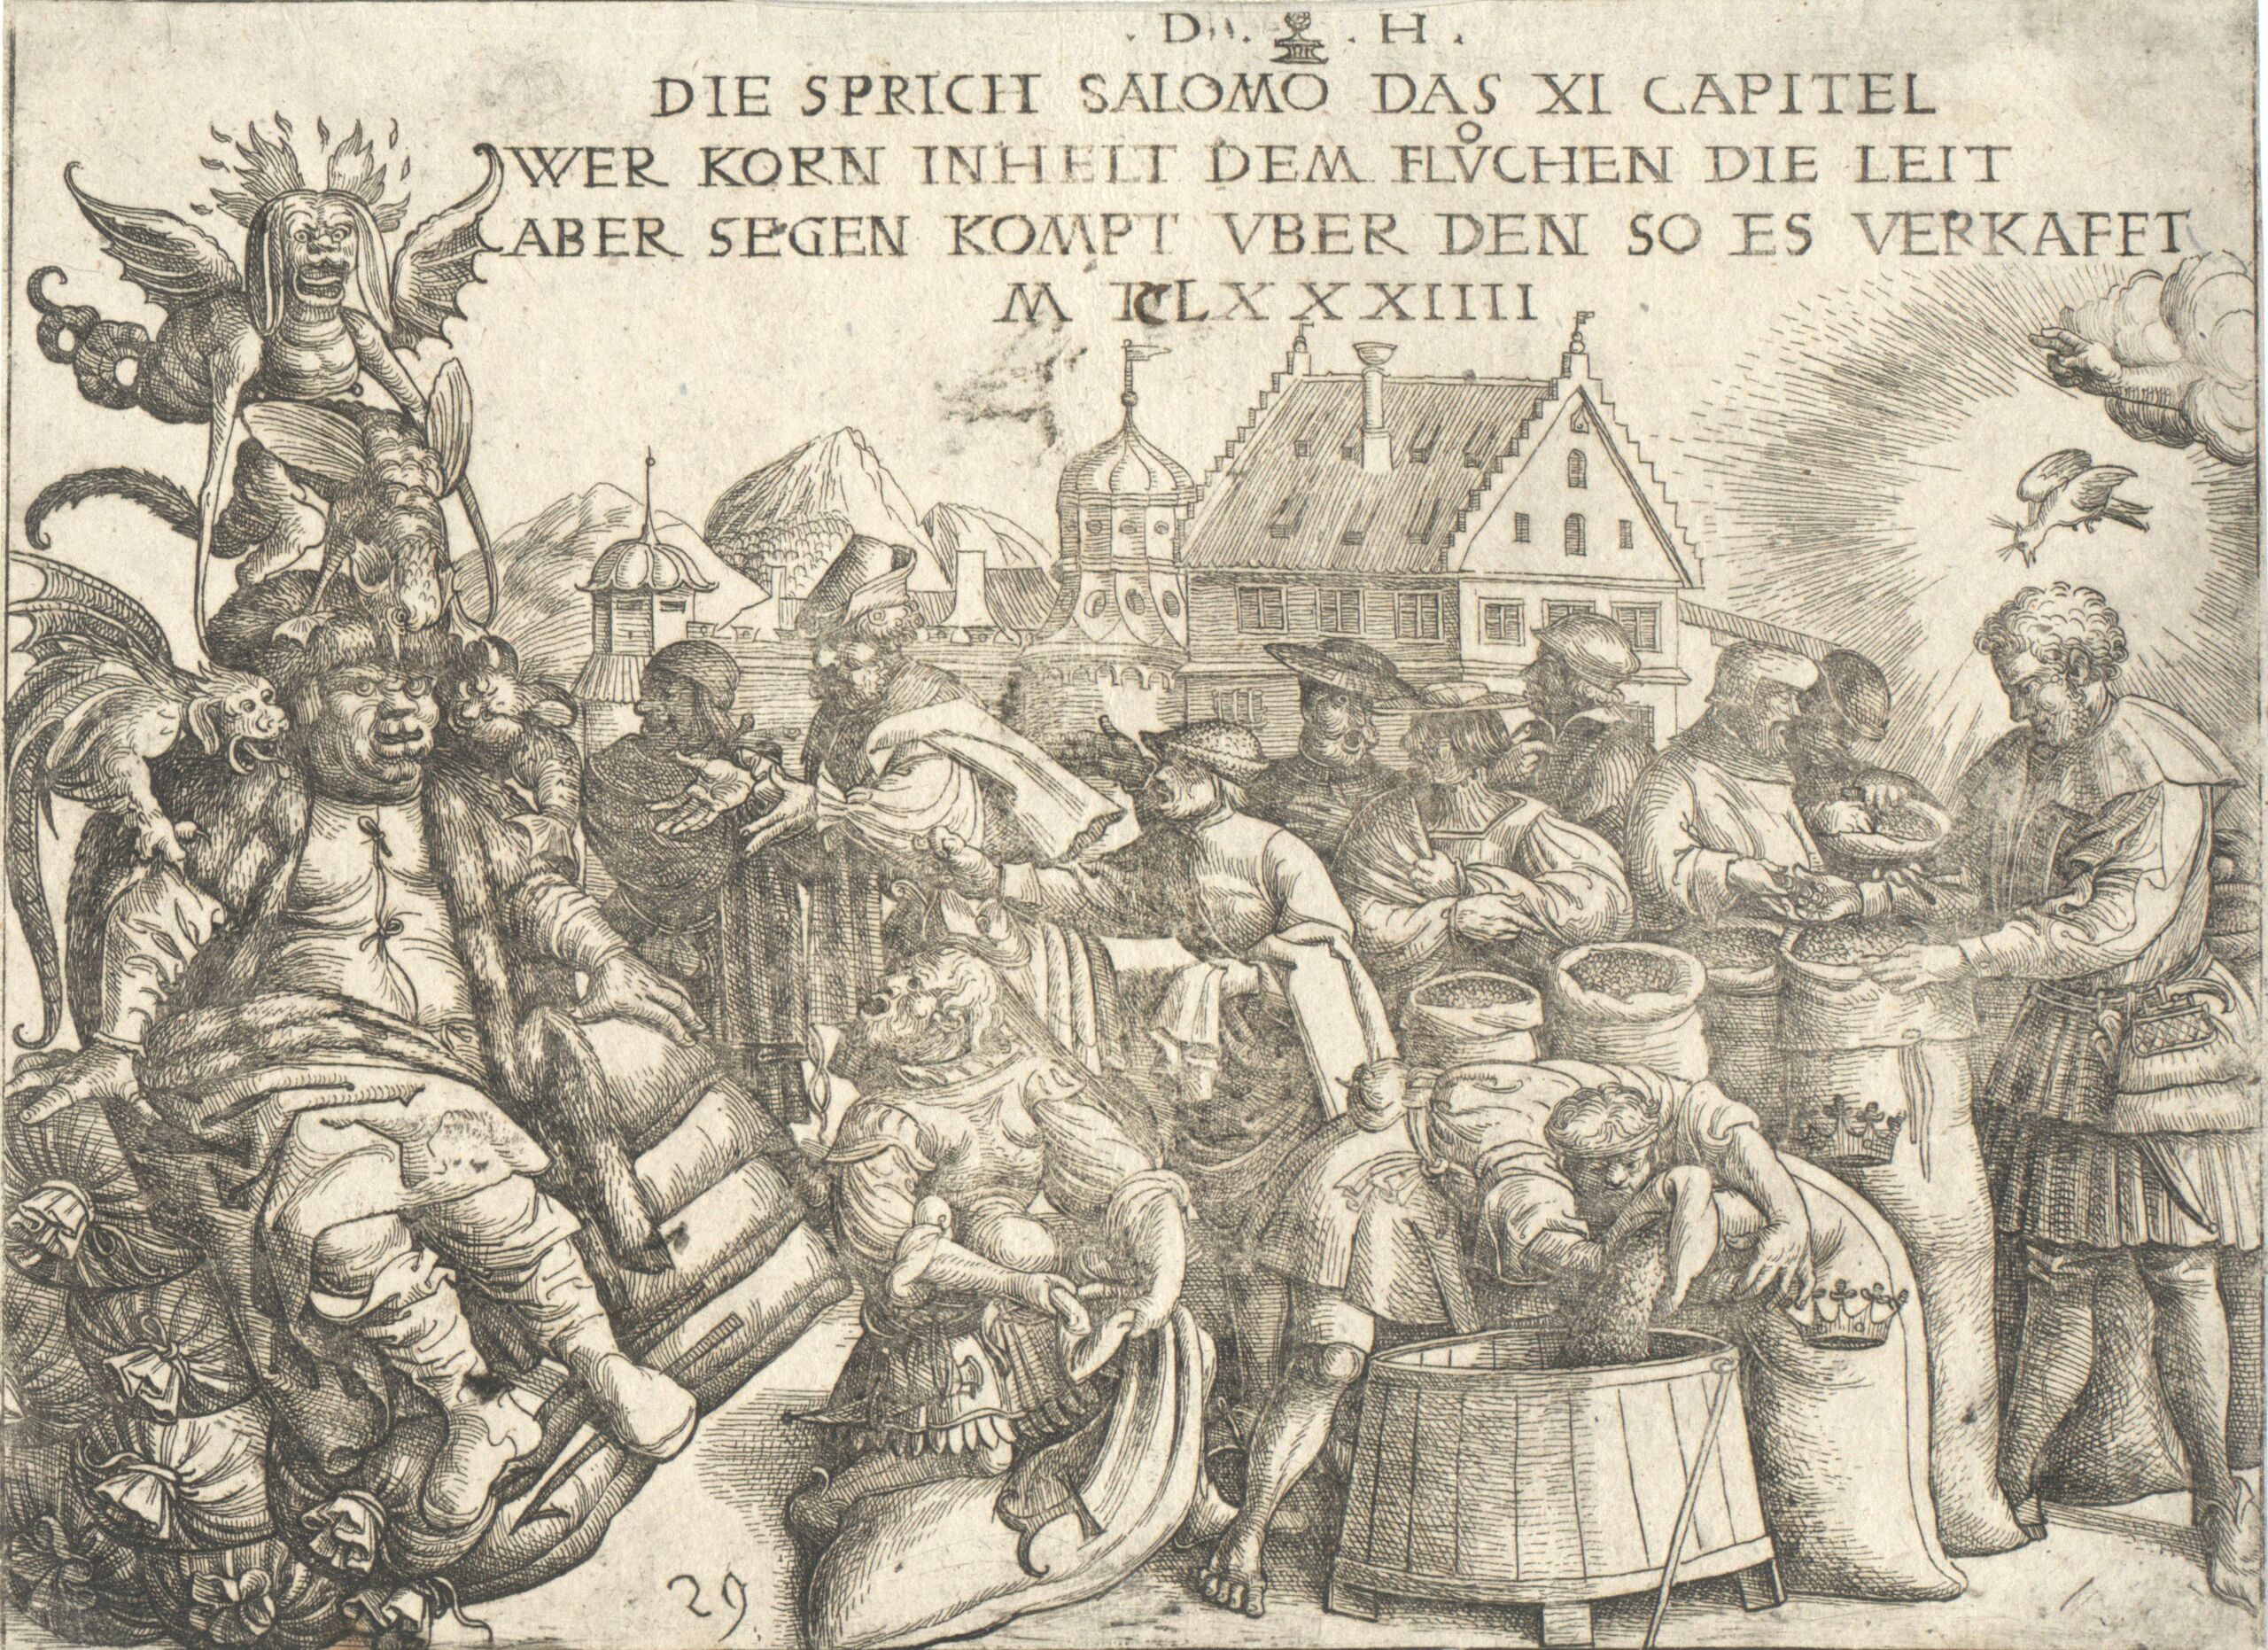 . D . H .
DIE SPRICH SALOMO DAS XI CAPITEL
WER KORN INHELT DEM FLŮCHEN DIE LEIT
ABER SEGEN KOMPT VBER DEN SO ES VERKAFFT
M LXXXIIII
29